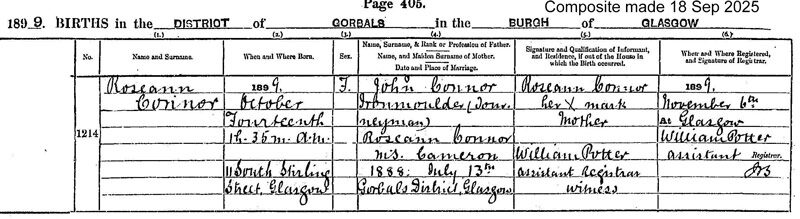 Page 405.
Composite made 18 Sep 2025
1899. BIRTHS in the DISTRICT of GORBALS in the BURGH of GLASGOW
(1.) (2.) (3.) (4.) (5.) (6.)
No.
Name and Surname.
When and Where Born.
Sex.
Name, Surname, & Rank or Profession of Father.
Name, and Maiden Surname of Mother.
Date and Place of Marriage.
Signature and Qualification of Informant,
and Residence, if out of the House in
which the Birth occurred.
When and Where Registered,
and Signature of Registrar.
1214
Roseann
Connor
1899.
October
Fourteenth
1h. 35m. a.m.
11 South Stirling
Street, Glasgow
F.
John Connor
Ironmoulder (Jour-
neyman)
Roseann Connor
m.s. Cameron
1888: July 13th
Gorbals District, Glasgow
Roseann Connor
her X mark
Mother
William Potter
assistant Registrar
witness
1899.
November 6th
At Glasgow
William Potter
assistant Registrar.